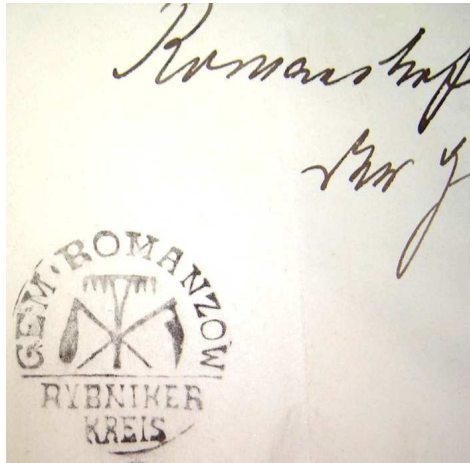 Romanshof
der G
GEM. ROMANZOW
RYBNIKER
KREIS